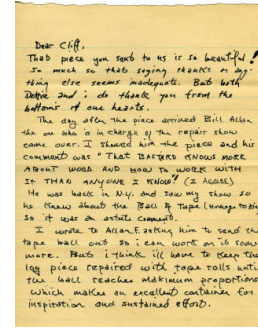 Dear Cliff,
That piece you sent to us is so beautiful!
So much so that saying thanks or any-
thing else seems inadequate. But both
and i do thank you from the
bottoms of our hearts.
The day after the piece arrived Bill Allan
the one who is in charge of the repair show
came over. I showed him the piece and his
comment was "THAT BASTARD KNOWS MORE
ABOUT WOOD AND HOW TO WORK WITH
IT THAN ANYONE I KNOW" (I AGREE)
He was back in N.Y. and saw my show so
he knew about the Ball & Tape
so it was a astute comment.
I wrote to Allan F. asking him to send the
tape ball out so i can work on it some
more. But i think ill have to keep the
log piece repaired with tape rolls until
the ball reaches maximum proportions
which makes an excellent container for
inspiration and sustained effort.